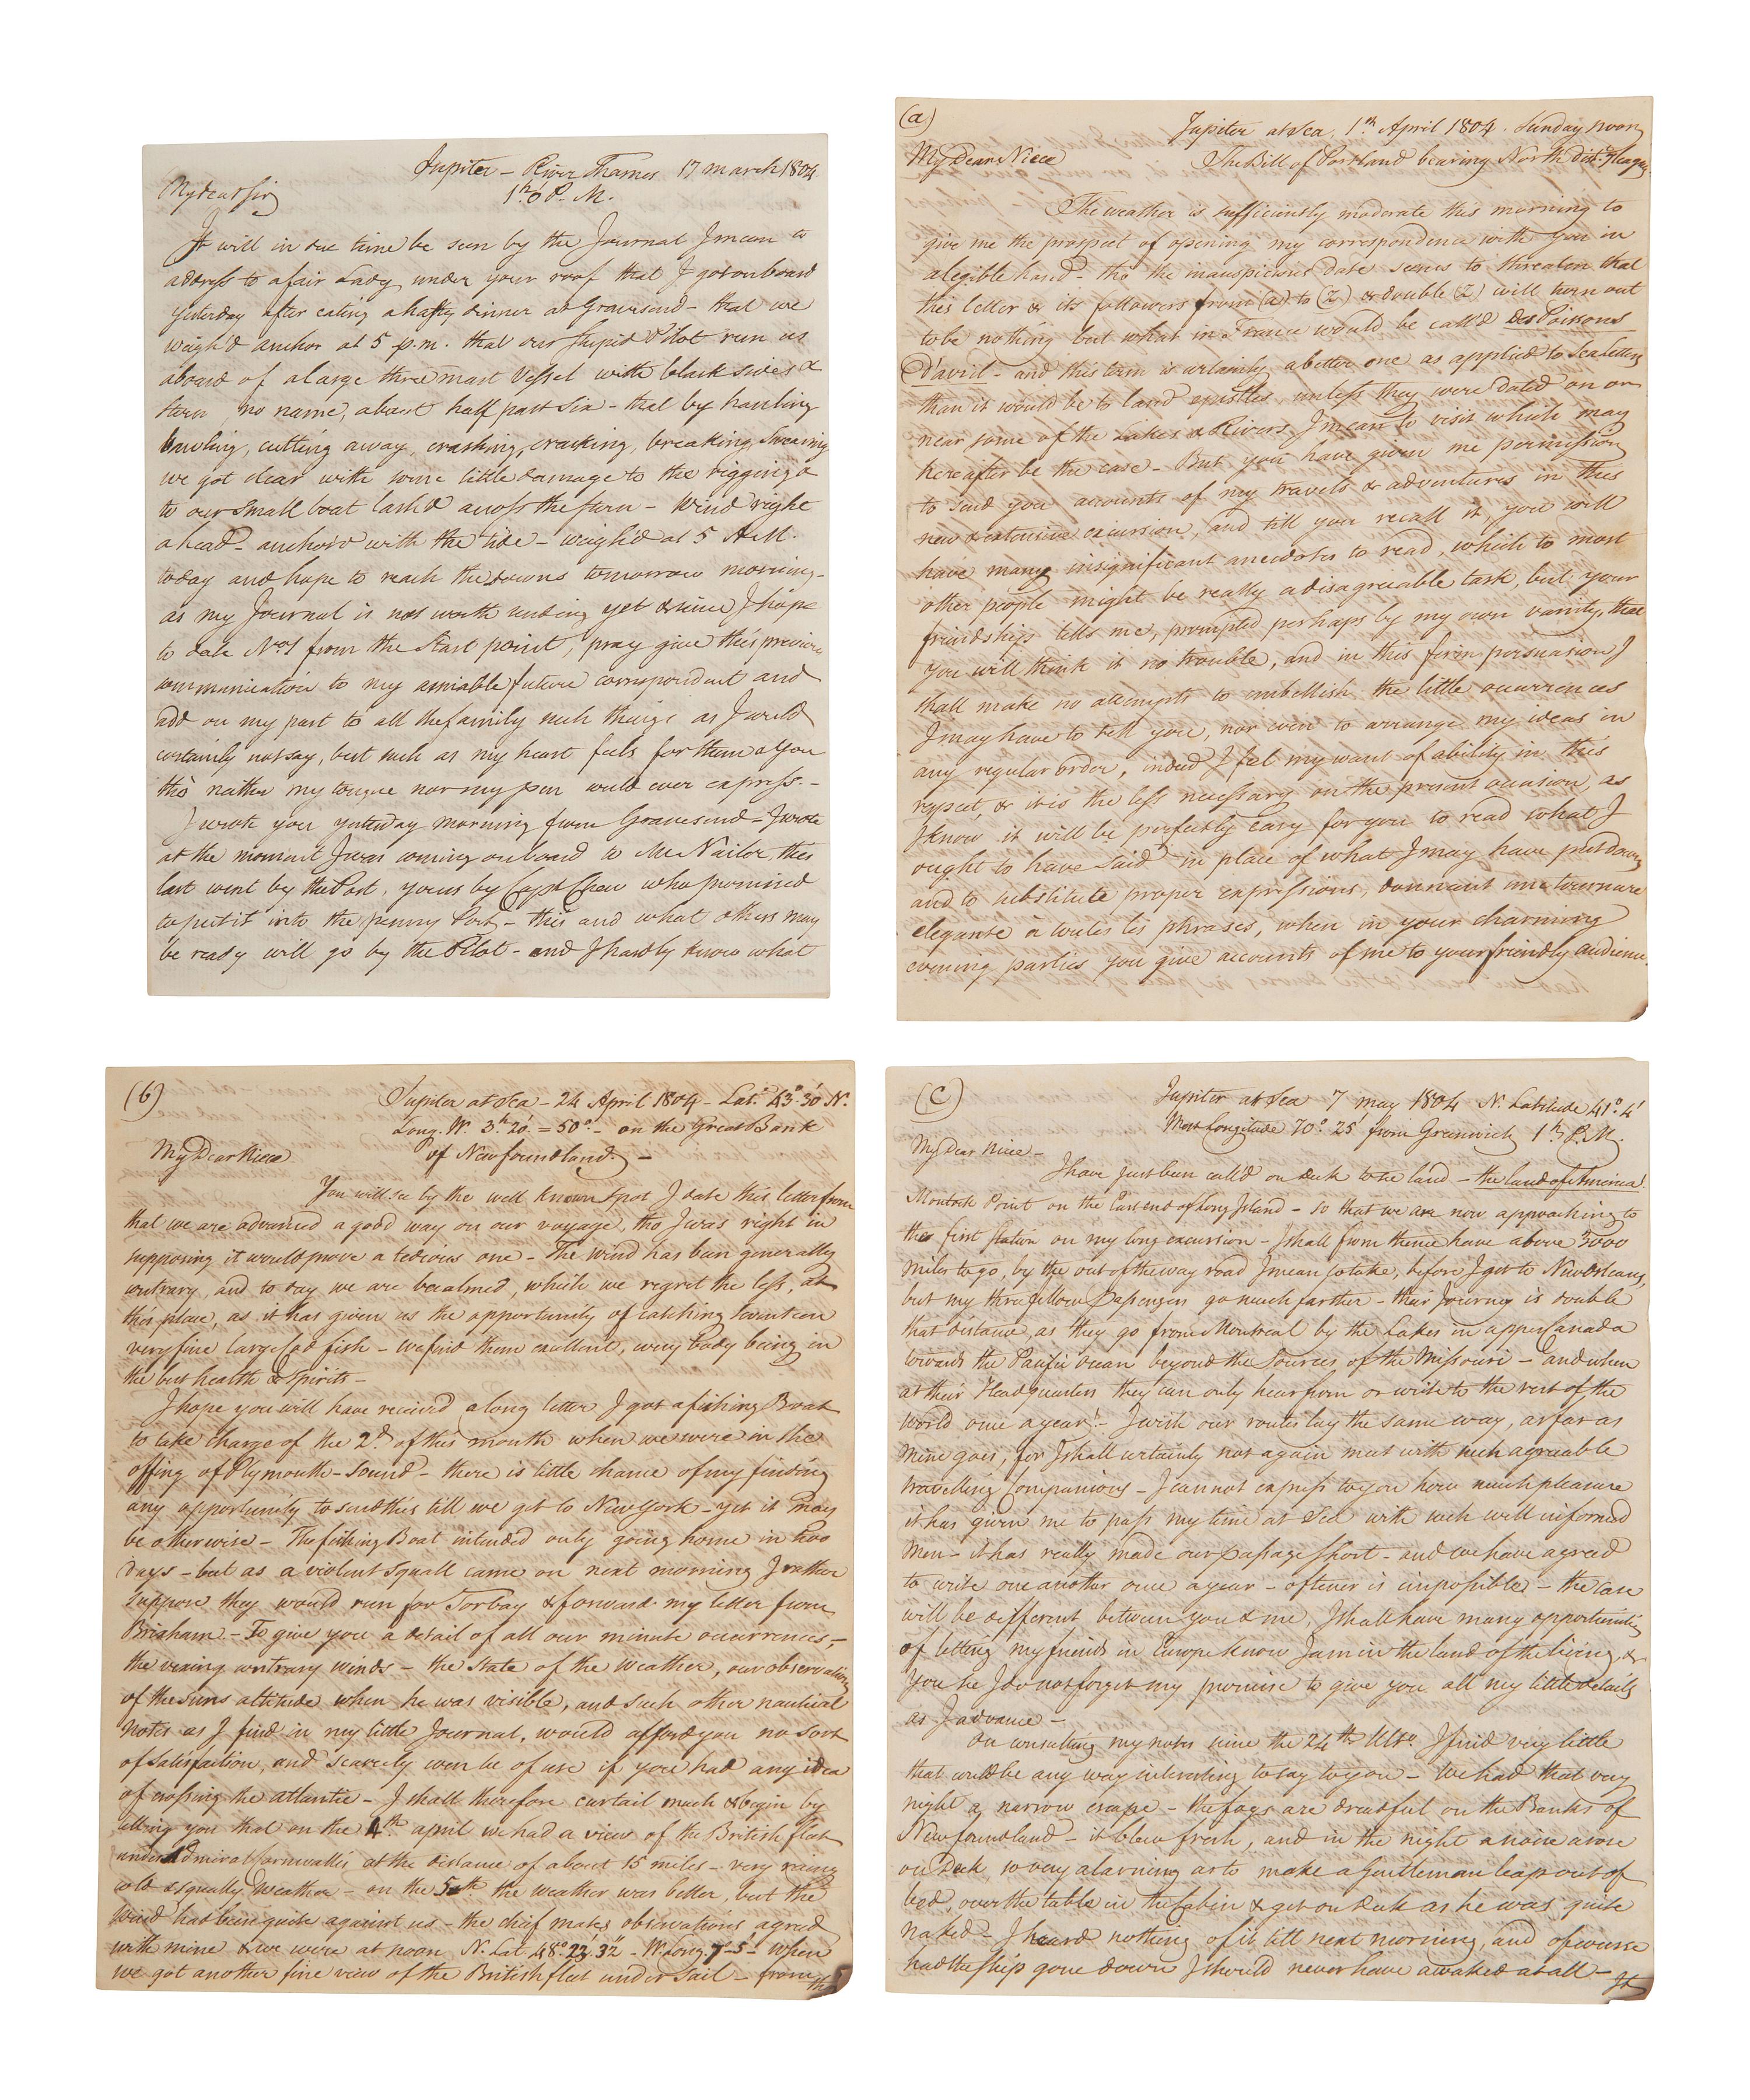 Jupiter – River Thames 17 march 1804
1h. 0' P. M.
My dear Sir
It will in due time be seen by the Journal I mean to
address to a fair Lady under your roof that I got on board
yesterday after eating a hasty dinner at Gravesend – that we
weigh'd anchor at 5 p.m. that our stupid Pilot run us
aboard of a large three mast Vessel with black sides &
stern no name, about half past Six – that by hauling
bawling, cutting away, crashing, cracking, breaking, Swearing
we got clear with some little damage to the rigging &
to our small boat lash'd across the stern – Wind right
ahead – anchor'd with the tide – weigh'd at 5 A.M.
today and hope to reach the downs tomorrow morning –
as my Journal is not worth sending yet & since I hope
to date No. 1 from the Start point, pray give this previous
communication to my amiable future correspondent and
add on my part to all the family such things as I could
certainly not say, but such as my heart feels for them & you
tho' neither my tongue nor my pen could ever express. –
I wrote you yesterday morning from Gravesend – I wrote
at the moment I was coming on board to Mr Nailor, this
last went by the Post, yours by Capt. Chew who promised
to put it into the penny Post – this and what others may
be ready will go by the Pilot – and I hardly know what
(a)
Jupiter at Sea, 1st April 1804. Sunday noon
My Dear Niece The Bill of Portland bearing North dist. leagues
The weather is sufficiently moderate this morning to
give me the prospect of opening my correspondence with you in
a legible hand – tho' the inauspicious date seems to threaten that
this letter & its followers from (a) to (Z) & double (Z) will turn out
to be nothing but what in France would be call'd des Poissons
D'avril – and this term is certainly a better one as applied to Sea letters
than it would be to land epistles unless they were dated on or
near some of the Lakes & Rivers I mean to visit which may
hereafter be the case – But you have given me permission
to send you accounts of my travels & adventures in this
new & extensive excursion, and till you recall it, you will
have many insignificant anecdotes to read, which to most
other people might be really a disagreeable task, but your
friendship tells me, prompted perhaps by my own vanity, that
you will think it no trouble, and in this firm persuasion I
shall make no attempts to embellish the little occurrences
I may have to tell you, nor even to arrange my ideas in
any regular order, indeed I feel my want of ability in this
respect, & it is the less necessary on the present occasion, as
I know it will be perfectly easy for you to read what I
ought to have said in place of what I may have put down
and to substitute proper expressions, donnant une tournure
elegante à toutes les phrases, when in your charming
evening parties you give accounts of me to your friendly audience.
(b)
Jupiter at Sea – 24 April 1804 – Lat. 43°. 30' N.
Long. W. 3h. 20' = 50° – on the Great Bank
My Dear Niece of Newfoundland. –
You will see by the well known spot I date this letter from
that we are advanced a good way on our voyage, tho I was right in
supposing it would prove a tedious one – The wind has been generally
contrary, and to day we are becalmed, which we regret the less, at
this place, as it has given us the opportunity of catching seventeen
very fine large Cod fish – We find them excellent, every body being in
the best health & spirits –
I hope you will have received a long letter I got a fishing Boat
to take charge of the 2d. of this month when we were in the
offing of Plymouth-Sound – there is little chance of my finding
any opportunity to send this till we get to New York – yet it may
be otherwise – The fishing Boat intended only going home in two
days – but as a violent squall came on next morning I rather
suppose they would run for Torbay & forward my letter from
Brixham – To give you a detail of all our minute occurrences, –
the vexing contrary winds – the state of the weather, our observations
of the suns altitude when he was visible, and such other nautical
notes as I find in my little Journal, would afford you no sort
of satisfaction, and scarcely even be of use if you had any idea
of crossing the atlantic – I shall therefore curtail much & begin by
telling you that on the 4th april we had a view of the British fleet
under Admiral Cornwallis at the distance of about 15 miles – very rainy
cold & squally Weather – on the 5th the weather was better, but the
Wind had been quite against us – the chief mate's observations agreed
with mine & we were at noon N. Lat. 48°. 22' 32" – W. Long. 7°–5' – when
we got another fine view of the British fleet under Sail – from
the
(C)
Jupiter at Sea 7 may 1804 N. Latitude 41°. 4'
West Longitude 70°. 25' from Greenwich 1h. P.M.
My Dear Niece –
I have just been call'd on deck to see land – the land of America!
Montock Point on the East end of Long Island – so that we are now approaching to
the first station on my long excursion – I shall from thence have above 3000
miles to go, by the out of the way road I mean to take, before I get to New Orleans,
but my three fellow Passengers go much farther – their Journey is double
that distance, as they go from Montreal by the Lakes in upper Canada
towards the Pacific Ocean beyond the Sources of the Missouri – and when
at their Head quarters they can only hear from or write to the rest of the
World once a year! – I wish our routes lay the same way, as far as
mine goes, for I shall certainly not again meet with such agreeable
travelling Companions – I cannot express to you how much pleasure
it has given me to pass my time at Sea with such well informed
Men – it has really made our passage short – and we have agreed
to write one another once a year – oftener is impossible – the case
will be different between you & me, I shall have many opportunities
of letting my friends in Europe know I am in the land of the living, &
You he I do not forget my promise to give you all my little details
as I advance –
On consulting my notes since the 24th Ulto. I find very little
that could be any way interesting to say to you – We had that very
night a narrow escape – the fogs are dreadful on the Banks of
Newfoundland – it blew fresh, and in the night a noise arose
on Deck so very alarming as to make a Gentleman leap out of
bed, over the table in the Cabin & get on deck as he was quite
naked – I heard nothing of it till next morning, and of course
had the ship gone down I should never have awaked at all –
It